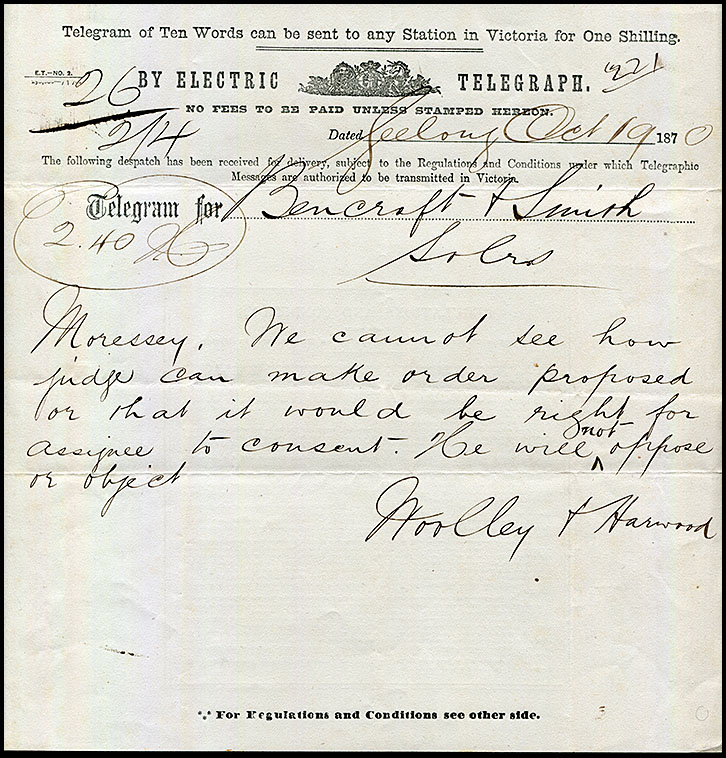 Telegram of Ten Words can be sent to any Station in Victoria for One Shilling.
E.T.—NO. 2.
26
BY ELECTRIC TELEGRAPH.
221
NO FEES TO BE PAID UNLESS STAMPED HEREON.
2/4
Dated Geelong Oct 19 1870
The following despatch has been received for delivery, subject to the Regulations and Conditions under which Telegraphic
Messages are authorized to be transmitted in Victoria.
Telegram for Bencraft & Smith
2.40
Solrs
Moressey. We cannot see how
judge can make order proposed
or that it would be right for
assignee to consent. He will not oppose
or object
Woolley & Harwood
For Regulations and Conditions see other side.